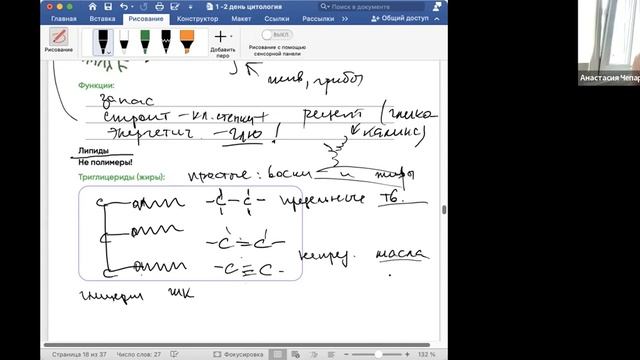 1 -2 день цитология
Поиск в документе
Главная Вставка Рисование Конструктор Макет Ссылки Рассылки Общий доступ
Рисование
Добавить перо
Рисование с помощью сенсорной панели
ВЫКЛ
жив, грибы
Функции:
запас
строит - кл. стенки + рецепт (глико
каликс)
энергетич. - глю !
Липиды
Не полимеры!
Триглицериды (жиры): простые: воски и жиры
-C-C- предельные тв.
-C=C-
-C≡C- непред. масла
глицерин ЖК
Страница 18 из 37 Число слов: 27 Фокусировка 132 %
Анастасия Чепар